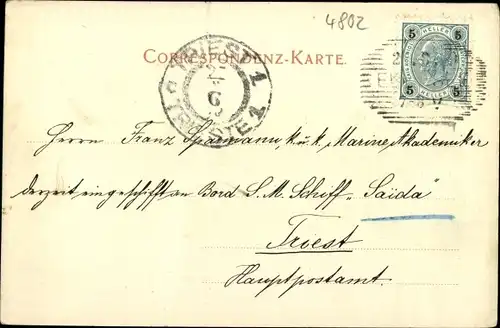 4802
CORRESPONDENZ-KARTE.
5 HELLER 5
5 HELLER 5
TRIEST 1
6
TRIESTE 1
Herrn Franz Sparmann, k. u. k. Marine Akademiker
derzeit eingeschifft an Bord S. M. Schiff „Saida"
Triest
Hauptpostamt.